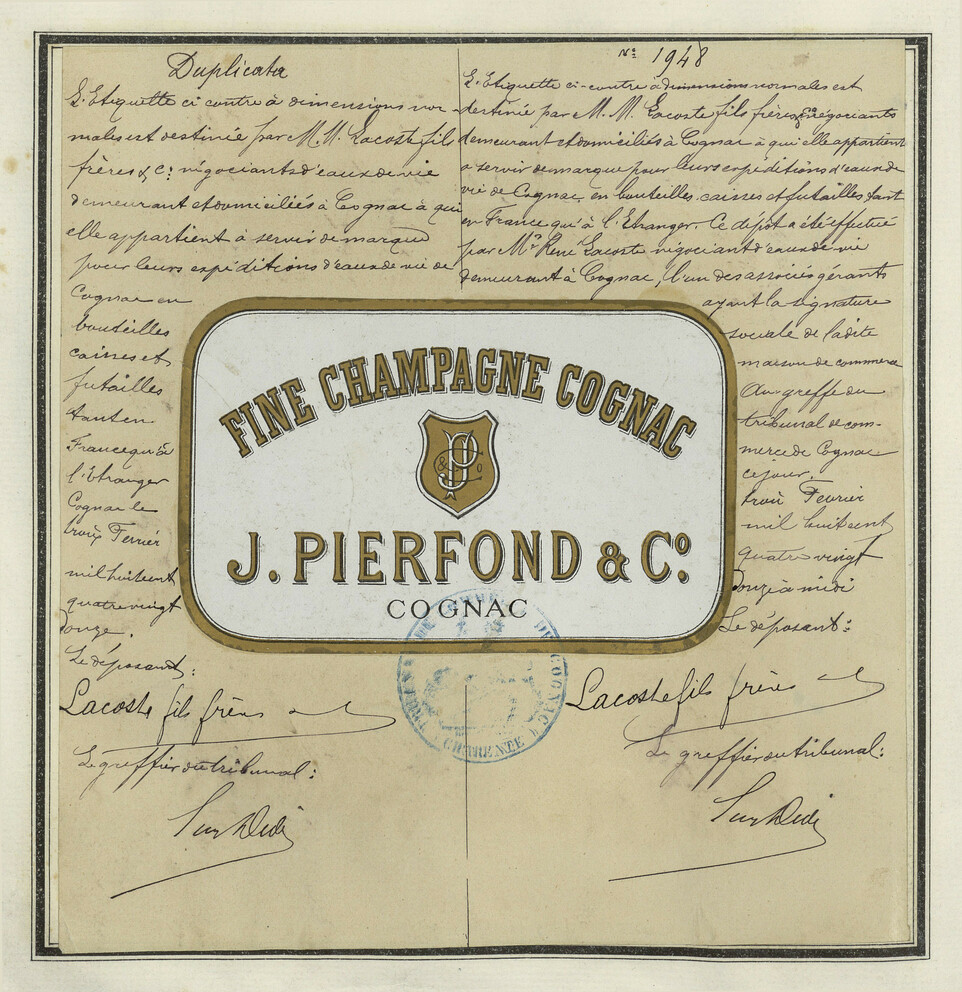 Duplicata
L'Etiquette ci contre à dimensions nor-
males est destinée par M.M. Lacoste fils
frères & Cie négociants d'eaux de vie
demeurant et domiciliés à Cognac à qui
elle appartient à servir de marque
pour leurs expéditions d'eaux de vie de
Cognac en
bouteilles
caisses et
futailles
tant en
France qu'à
l'Etranger
Cognac le
trois Fevrier
mil huit cent
quatre vingt
douze.
Le déposant:
Lacoste fils frères
Le greffier du tribunal:
No 1948
L'Etiquette ci-contre à dimensions normales est
destinée par M.M. Lacoste fils frères & Cie négociants
demeurant et domiciliés à Cognac à qui elle appartient
a servir de marque pour leurs expéditions d'eaux de
vie de Cognac, en bouteilles, caisses et futailles tant
en France qu'à l'Etranger. Ce dépôt a été effectué
par Mr René Lacoste négociant d'eaux de vie
demeurant à Cognac, l'un des associés gérants
ayant la signature
sociale de ladite
maison de commerce
Au greffe du
tribunal de com-
merce de Cognac
ce jour.
trois Fevrier
mil huit cent
quatre vingt
douze à midi
Le déposant:
Lacoste fils frères
Le greffier du tribunal:
FINE CHAMPAGNE COGNAC
JP & Co
J. PIERFOND & Co.
COGNAC
DE COGNAC
CHARENTE